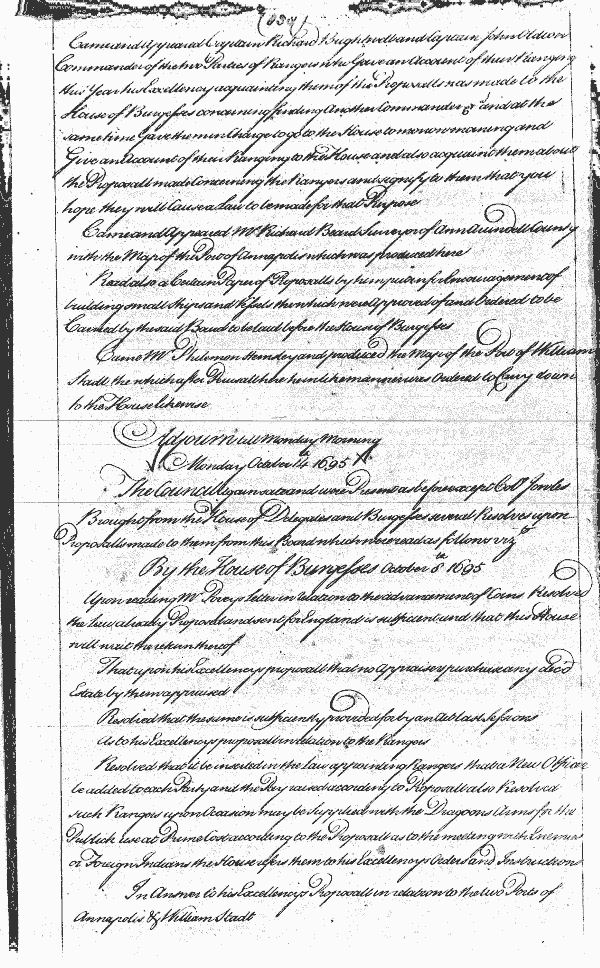 (839)
Came and Appeared Captain Richard Brightwell and Captain John Oldton
Commander of the two Parties of Rangers who Gave an Account of their Ranging
this Year his Excellency acquainting them of the Proposalls was made to the
House of Burgesses concerning sending Another Commander &c and at the
same time Gave them in Charge to go to the House to morrow morning and
Give an Account of their Ranging to the House and also acquaint them about
the Proposall made Concerning the Rangers and signify to them that you
hope they will Cause a Law to be made for that Purpose
Came and Appeared Mr Richard Beard Surveyor of Ann Arundell County
with the Map of the Port of Annapolis which was produced here
Read also a Certain Paper of Proposalls by him put in for Encouragement of
building small ships and Vessels then which were Approved of and Ordered to be
Carried by the said Beard to be laid before the House of Burgesses
Came Mr Philemon Hemsley and produced the Map of the Port of William
Stadt, the which after Perusall here he in like manner was Ordered to Carry down
to the House likewise
Adjourn till Monday Morning
Monday October 14th 1695
The Council again sate and were Present as before except Coll Jowles
Brought from the House of Delegates and Burgesses several Resolves upon
Proposalls made to them from this Board which were read as follows vizt
By the House of Burgesses October 8th 1695
Upon reading Mr Poveys Letter in relation to the advancement of Coins Resolved
the Law already Proposed and sent for England is sufficient and that this House
will wait the return thereof
That upon his Excellency's proposall that no Appraisers purchase any decd
Estate by them appraised
Resolved that the same is sufficiently provided for by an Act last Sessions
As to his Excellencys proposall in relation to the Rangers
Resolved that it be inserted in the Law appointing Rangers that a New Officer
be added to each Party and the Pay raised according to Proposall also Resolved
such Rangers upon Occasion may be Supplied with the Dragoons Arms for the
Publick use at Prime Cost according to the Proposall as to the meeting with Enemies
or Foreign Indians the House refers them to his Excellencys Orders and Instructions
In Answer to his Excellency's Proposall in relation to the two Ports of
Annapolis & William Stadt